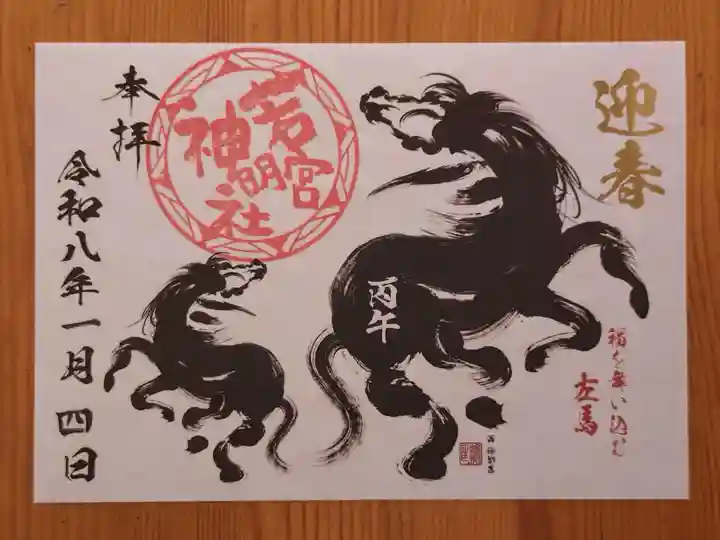 迎春
福を舞い込む
左馬
丙午
若宮
神明
社
奉拝
令和八年一月四日